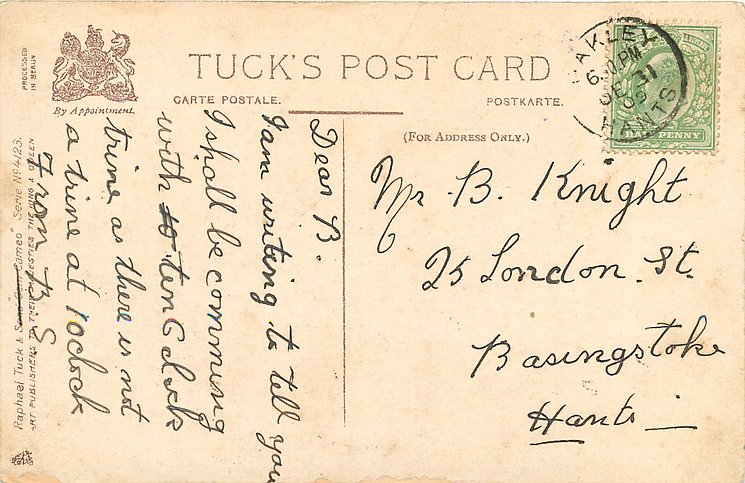 PROCESSED
IN BERLIN
By Appointment.
TUCK'S POST CARD
CARTE POSTALE.
POSTKARTE.
(FOR ADDRESS ONLY.)
OAKLEY
6.30 PM
DE 31
09
HANTS
HALFPENNY
Dear B.
I am writing to tell you
I shall be comming
with to ten 6 clock
trine as there is not
a trine at 10clock
from B S
Mr. B. Knight
25 London. St.
Basingstoke
Hants
Raphael Tuck & Sons' "Cameo" Serie No 4123.
ART PUBLISHERS TO THEIR MAJESTIES THE KING & QUEEN